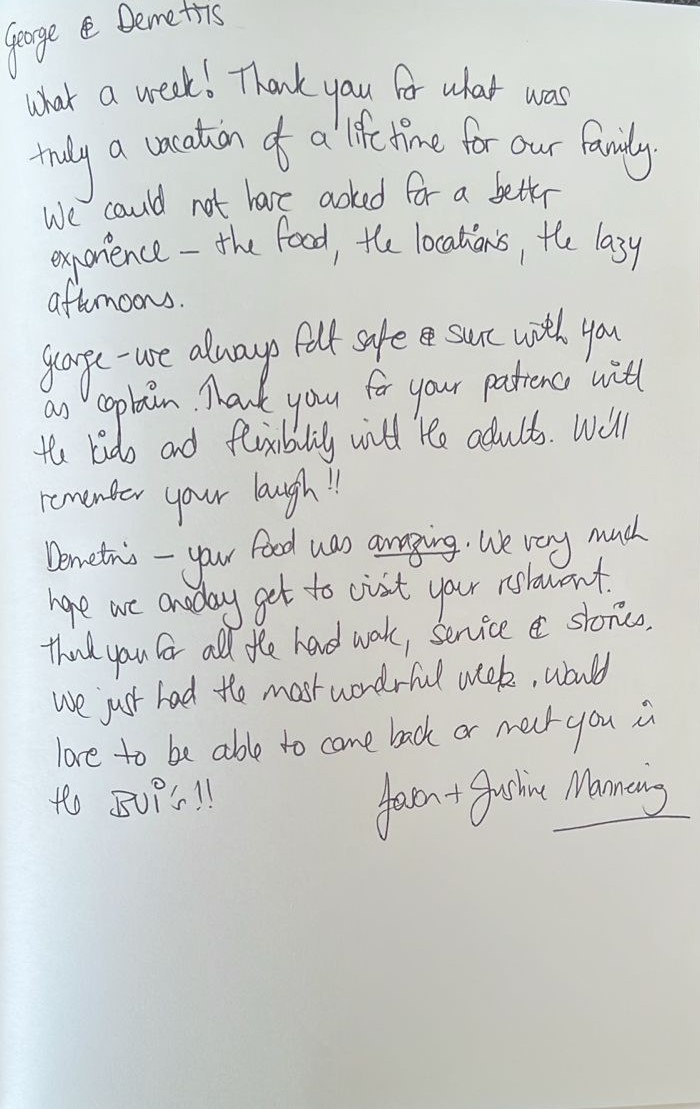 George & Demetris
What a week! Thank you for what was
truly a vacation of a lifetime for our family.
We could not have asked for a better
experience – the food, the locations, the lazy
afternoons.
George – we always felt safe & sure with you
as captain. Thank you for your patience with
the kids and flexibility with the adults. We'll
remember your laugh!!
Demetris – your food was amazing. We very much
hope we oneday get to visit your restaurant.
Thank you for all the hard work, service & stories.
We just had the most wonderful week. Would
love to be able to come back or meet you in
the BVI's!!
Jason + Justine Manneing